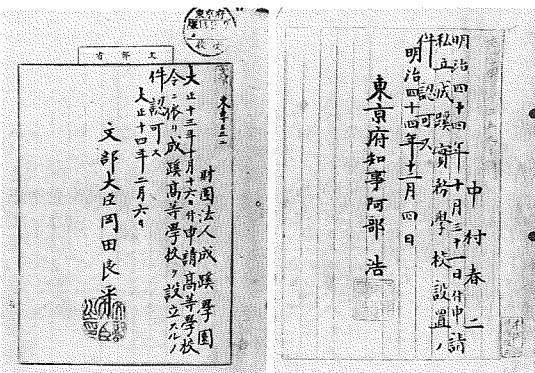 中村春二
明治四十四年十月三十一日付申請
私立成蹊實務學校設置ノ
件認可ス
明治四十四年十二月四日
東京府知事阿部浩
文部省
財團法人成蹊學園
大正十三年十月十六日付申請高等學校
令ニ依リ成蹊高等學校ヲ設立スルノ
件認可ス
大正十四年二月六日
文部大臣岡田良平